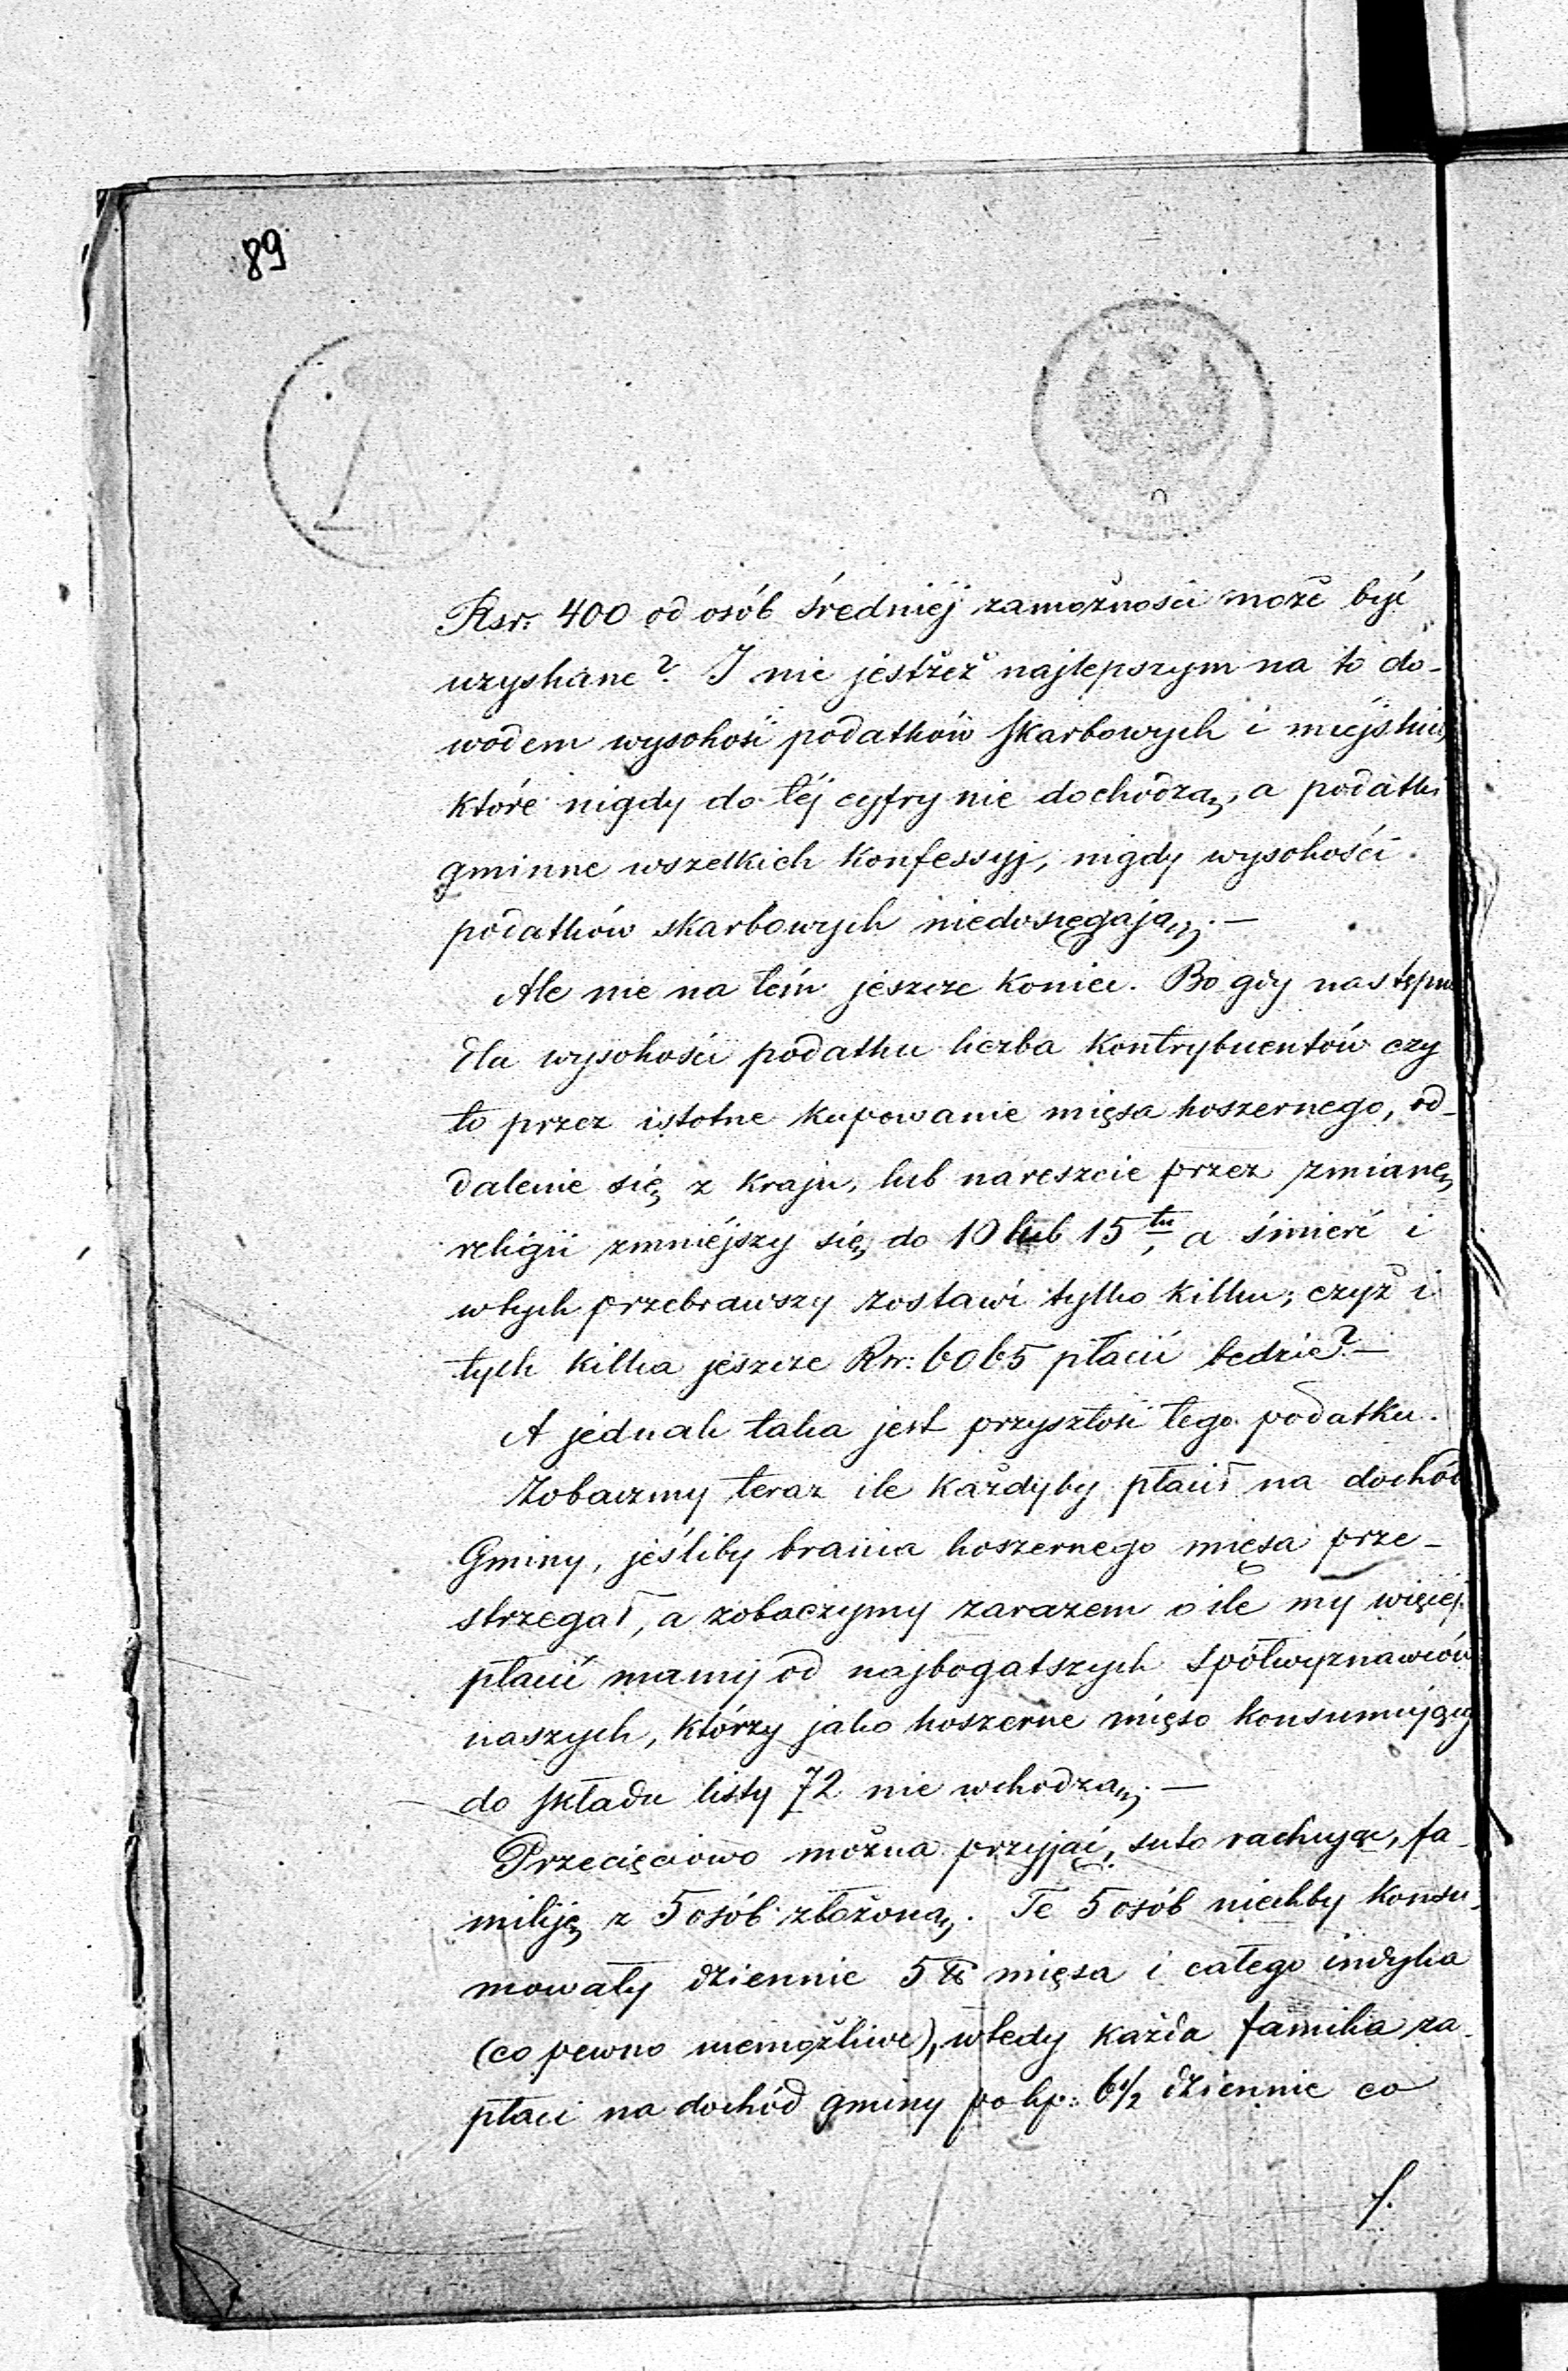 89
Rsr. 400 od osób średniéj zamożności może być
uzyskane? I nie jestże z najlepszym na to do-
wodem wysokość podatków skarbowych i miejskich,
które nigdy do téj cyfry nie dochodzą, a podatki
gminne wszelkich konfessyj, nigdy wysokości
podatków skarbowych niedosięgają. —
Ale nie na tém jeszcze koniec. Bo gdy następnie
dla wysokości podatku liczba kontrybuentów czy
to przez istotne kupowanie mięsa koszernego, od-
dalenie się z kraju, lub nareszcie przez zmianę
religii zmniéjszy się do 10 lub 15tu, a śmierć i
w tych przebrawszy zostawi tylko kilku; czyż i
tych kilka jeszcze Rsr: 6065 płacić bedzie? —
A jednak taka jest przyszłość tego podatku.
Zobaczmy teraz ile każdyby płacił na dochód
Gminy, jeśliby brania koszernego mięsa prze-
strzegał, a zobaczymy zarazem o ile my więcéj
płacić mamy od najbogatszych spółwyznawców
naszych, którzy jako koszerne mięso konsumujący
do składu listy 72 nie wchodzą. —
Przecięciowo można przyjąć, suto rachując, fa-
miliję z 5 osób złożoną. Te 5 osób niechby konsu-
mowały dziennie 5 ℔ mięsa i całego indyka
(co pewno niemożliwe), wtedy każda familia za-
płaci na dochód gminy po kp: 6 1/2 dziennie co